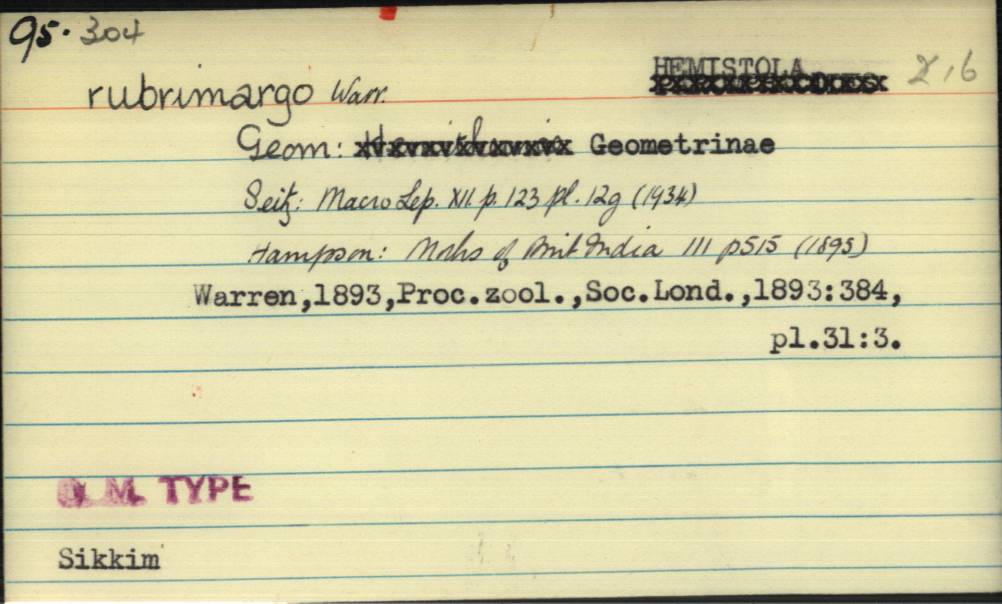 95.304
HEMISTOLA 216
rubrimargo Warr.
Geom: Geometrinae
Seitz: Macro Lep. XII p. 123 pl. 12g (1934)
Hampson: Moths of Brit India III p515 (1895)
Warren,1893,Proc.zool.,Soc.Lond.,1893:384,
pl.31:3.
B. M. TYPE
Sikkim